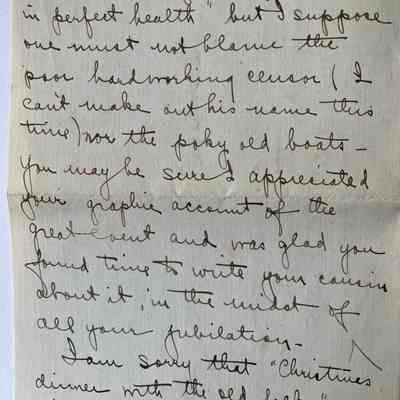 in perfect health" but I suppose
one must not blame the
poor hardworking censor (I
can't make out his name this
time) nor the poky old boats –
You may be sure I appreciated
your graphic account of the
great event and was glad you
found time to write your cousin
about it, in the midst of
all your jubilation –
I am sorry that "Christmas
dinner with the old folks"